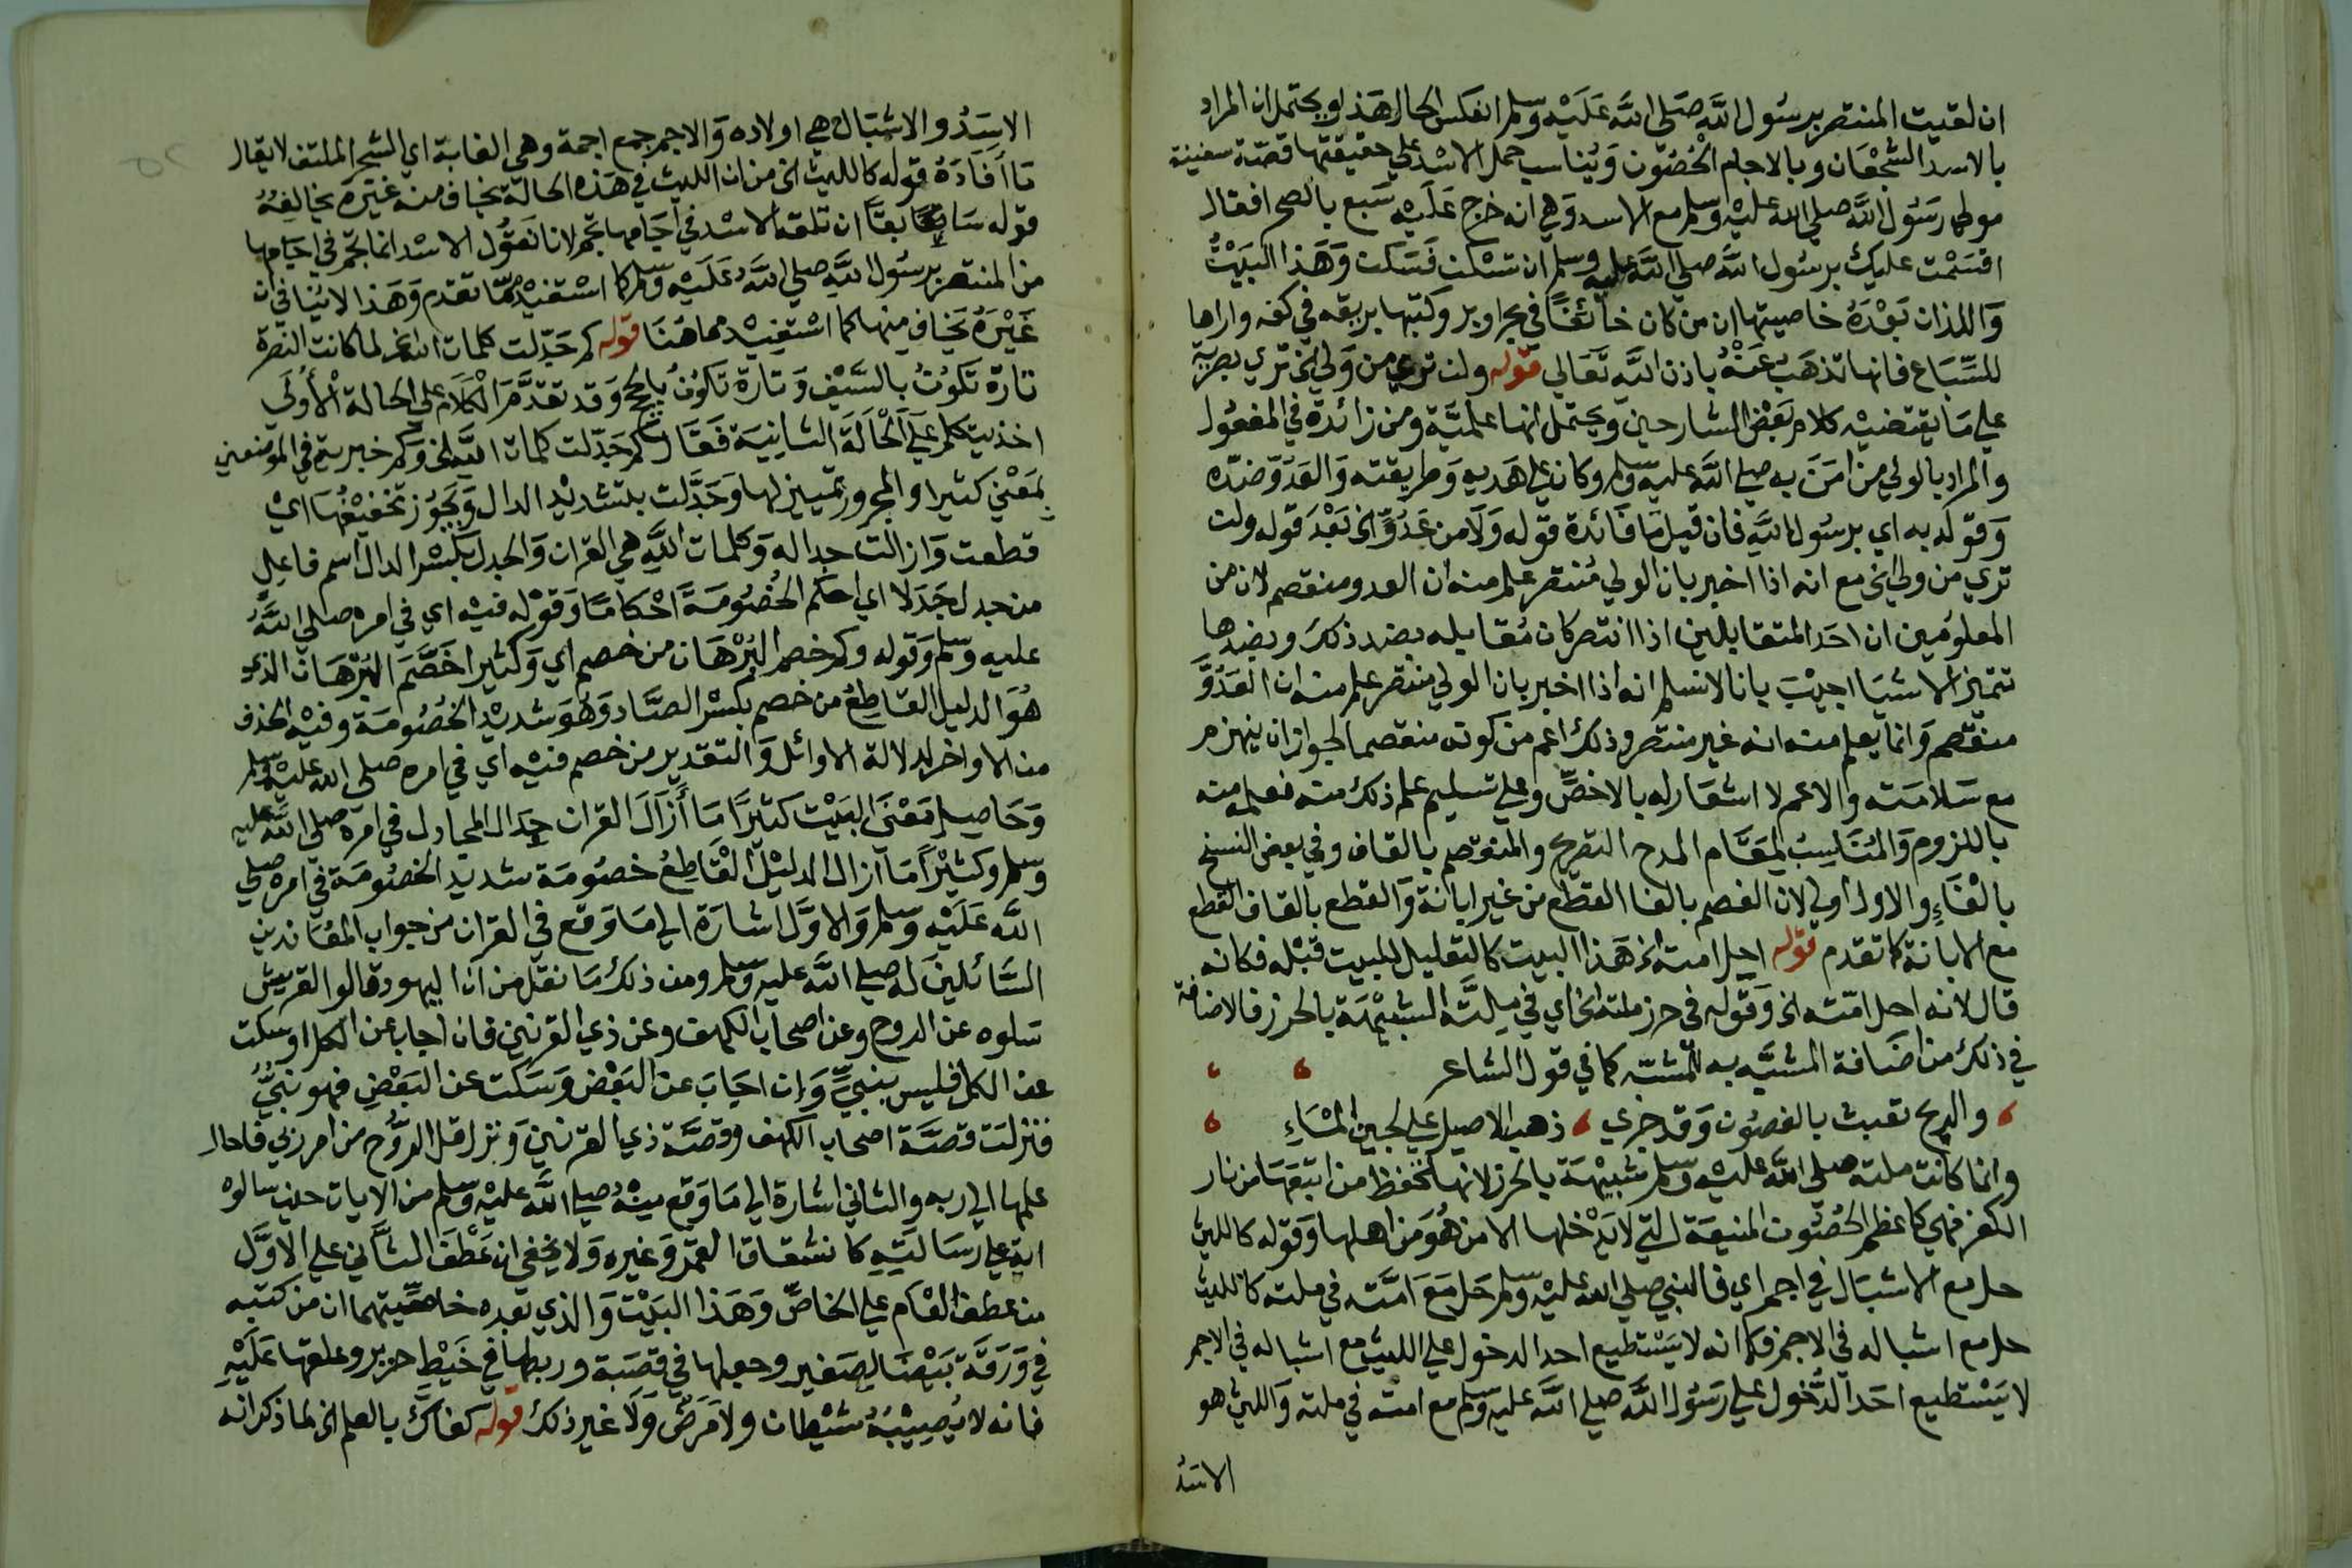 ان لقيت المنتصر برسول الله صلى الله عليه وسلم انعكس الحال هذا ويحتمل ان المراد
بالاسد الشجعان وبالاجام الحصون ويناسب حمل الاسد على حقيقتها قصة سفينة
مولى رسول الله صلى الله عليه وسلم مع الاسد وهي انه خرج عليه سبع بالصحرا فقال
اقسمت عليك برسول الله صلى الله عليه وسلم ان تسكن فسكت وهذا البيت
واللذان بعده خاصيتها ان من كان خائفا في بحر او بر وكتبها بريقه في كفه واراها
للسباع فانها تذهب عنه باذن الله تعالى قوله ولن ترى من ولي الخ ترى بصرية
على ما يقتضيه كلام بعض الشارحين ويحتمل انها علمية ومن زائدة في المفعول
والمراد بالولي من امن به صلى الله عليه وسلم وكان على هديه وطريقته والعدو ضده
وقوله به اي برسول الله فان قيل ما فائدة قوله ولا من عدو الخ بعد قوله ولن
ترى من ولي الخ مع انه اذا اخبر بان الولي منتصر علم منه ان العدو منقصم لان من
المعلومين ان احد المتقابلين اذا انتصر كان مقابله بضد ذلك وبضدها
تتميز الاشيا اجيب بانا لا نسلم انه اذا اخبر بان الولي منتصر علم منه ان العدو
منقصم وانما يعلم منه انه غير منتصر وذلك اعم من كونه منقصما لجواز ان ينهزم
مع سلامته والاعم لا اشعار له بالاخص وعلى تسليم علم ذلك منه فعلمه منه
باللزوم والمناسب لمقام المدح التصريح والمنقصم بالقاف وفي بعض النسخ
بالفاء والاول اولى لان الفصم بالفا القطع من غير ابانة والقطع بالقاف القطع
مع الابانة كما تقدم قوله احل امته الخ هذا البيت كالتعليل للبيت قبله فكانه
قال لانه احل امته الخ وقوله في حرز ملته الخ اي في ملته الشبيهة بالحرز فالاضافة
في ذلك من اضافة المشبه به للمشبه كما في قول الشاعر
والريح تعبث بالغصون وقد جرى ذهب الاصيل على لجين الماء
وانما كانت ملته صلى الله عليه وسلم شبيهة بالحرز لانها تحفظ من اتبعها من نار
الكفر فهي كاعظم الحصون المنيعة التي لا يدخلها الا من هو من اهلها وقوله كالليث
حل مع الاشبال في اجم اي فالنبي صلى الله عليه وسلم حل مع امته في ملته كالليث
حل مع اشباله في الاجم فكما انه لا يستطيع احد الدخول على الليث مع اشباله في الاجم
لا يستطيع احد الدخول على رسول الله صلى الله عليه وسلم مع امته في ملته والليث هو
الاسد
الاسد والاشبال هي اولاده والاجم جمع اجمة وهي الغابة اي الشجر الملتف لا يقال
ما أفاده قوله كالليث الخ من ان الليث في هذه الحالة يخاف منه غيره يخالفه
قوله سابقا ان تلقه الاسد في اجامها تجم لانا نقول الاسد انما تجم في اجامها
من المنتصر برسول الله صلى الله عليه وسلم كما استفيد مما تقدم وهذا لا ينافي ان
غيره يخاف منها كما استفيد مما هنا قوله كم جدلت كلمات الله الخ لما كانت النصرة
تارة تكون بالسيف وتارة تكون بالحجج وقد تقدم الكلام على الحالة الأولى
اخذ يتكلم على الحالة الثانية فقال كم جدلت كلمات الله الخ وكم خبرية في الموضعين
بمعنى كثيرا والمجرور تمييز لها وجدلت بتشديد الدال ويجوز تخفيفها اي
قطعت وازالت جداله وكلمات الله هي القران والجدل بكسر الدال اسم فاعل
من جدل جدلا اي احكم الخصومة احكاما وقوله فيه اي في امره صلى الله
عليه وسلم وقوله وكم خصم البرهان من خصم اي وكثيرا خصم البرهان الذي
هو الدليل القاطع من خصم بكسر الصاد وهو شديد الخصومة وفيه الحذف
من الاواخر لدلالة الاوائل والتقدير من خصم فيه اي في امره صلى الله عليه وسلم
وحاصل معنى البيت كثيرا ما أزال القران جدال المجادل في امره صلى الله عليه
وسلم وكثيرا ما ازال الدليل القاطع خصومة شديد الخصومة في امره صلى
الله عليه وسلم والاول اشارة الى ما وقع في القران من جواب المعاندين
السائلين له صلى الله عليه وسلم ومن ذلك ما نقل من ان اليهود قالوا لقريش
سلوه عن الروح وعن اصحاب الكهف وعن ذي القرنين فان اجاب عن الكل او سكت
عن الكل فليس بنبي وان اجاب عن البعض وسكت عن البعض فهو نبي
فنزلت قصة اصحاب الكهف وقصة ذي القرنين ونزل قل الروح من امر ربي فاحال
علمها الى ربه والثاني اشارة الى ما وقع منه صلى الله عليه وسلم من الايات حين سالوه
اية على رسالته كانشقاق القمر وغيره ولا يخفى ان عطف الثاني على الاول
من عطف العام على الخاص وهذا البيت والذي بعده خاصيتهما ان من كتبه
في ورقة بيضا لصغير وجعلها في قصبة وربطها في خيط حرير وعلقها عليه
فانه لا يصيبه شيطان ولا مرض ولا غير ذلك قوله كفاك بالعلم الخ لما ذكر انه